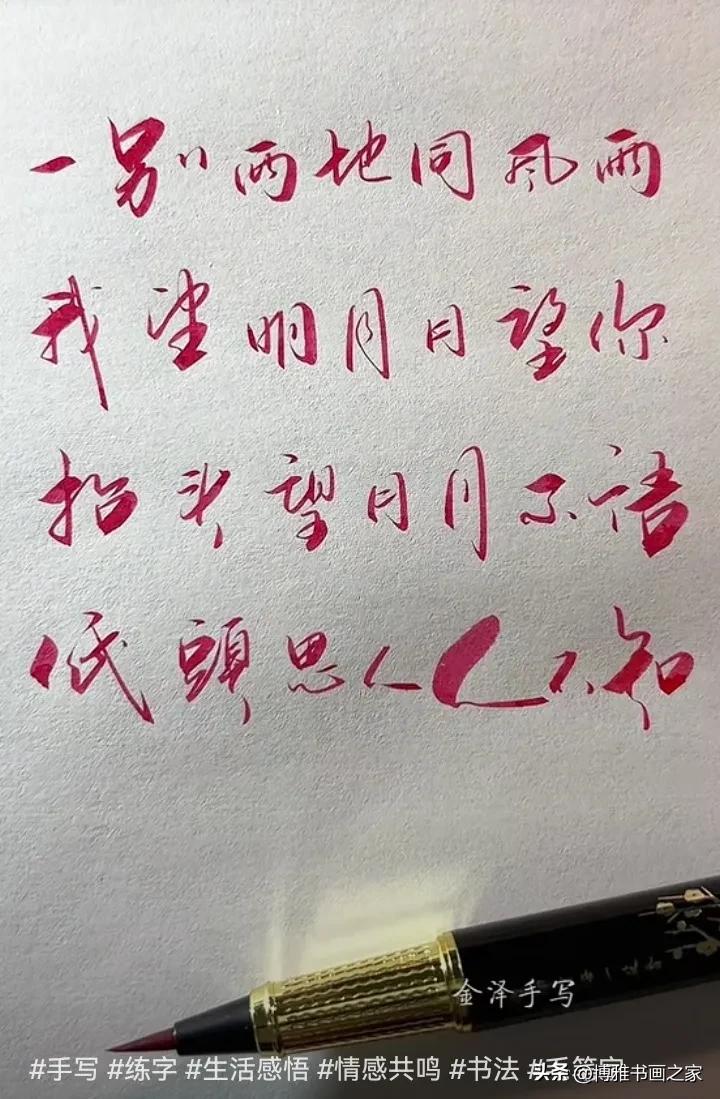 一别两地同风雨
我望明月月望你
抬头望月月不语
低頭思人人不知
金泽手写
#手写 #练字 #生活感悟 #情感共鸣 #书法 #手签字
头条 @博雅书画之家